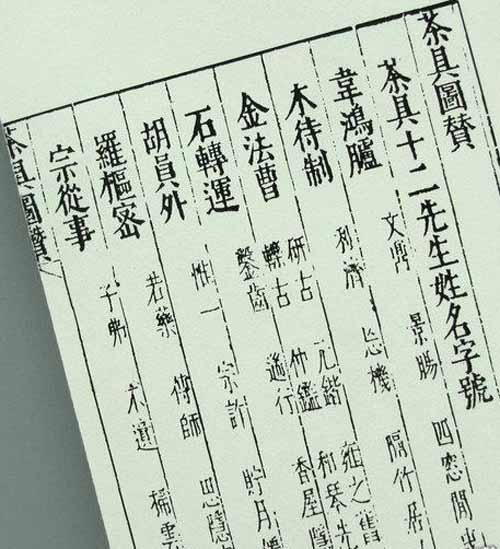 茶具圖贊
茶具十二先生姓名字號
韋鴻臚 文鼎 景暘 四窓閒
木待制 利濟 忘機 隔竹居
金法曹 研古 元鍇 雍之舊
轢古 仲鑑 和琴先
石轉運 鑿齒 遄行 香屋隱
胡員外 惟一 宗許 貯月
羅樞密 若藥 傳師 思隱
宗從事 子弗 不遺 掃雲
茶具圖贊